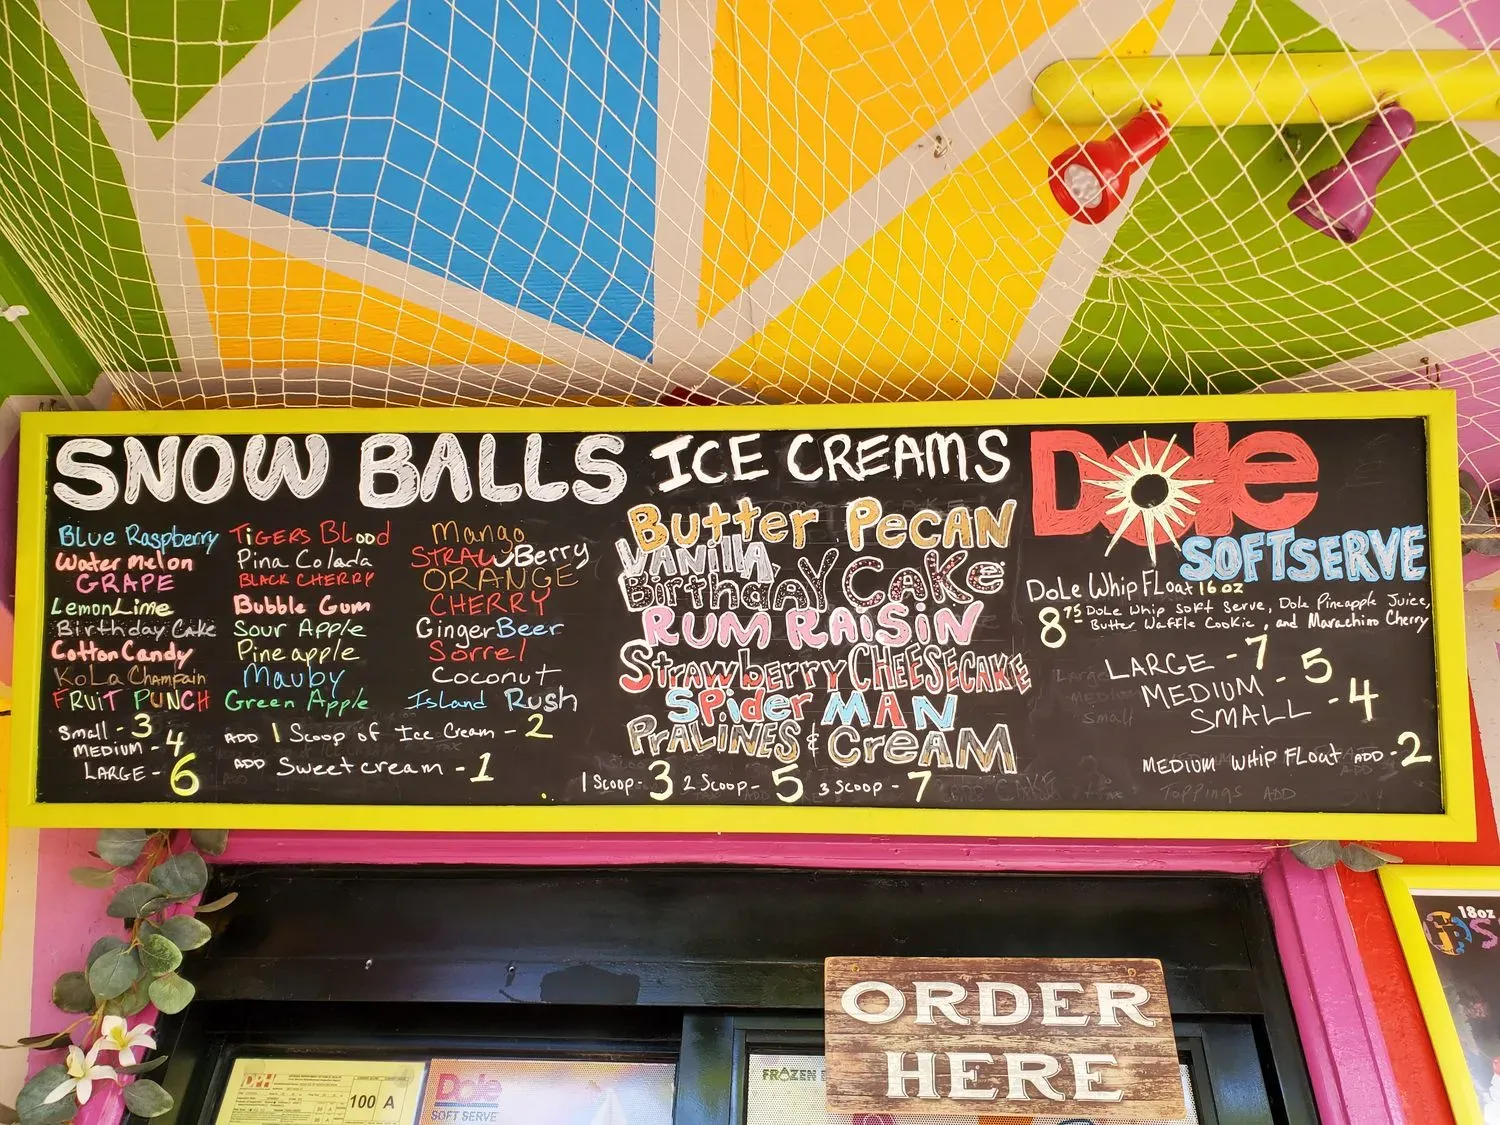 SNOW BALLS
Blue Raspberry
Water Melon
GRAPE
LemonLime
Birthday Cake
Cotton Candy
KoLa Champain
FRUIT PUNCH
TiGERS BLood
Pina Colada
BLACK CHERRY
Bubble Gum
Sour Apple
Pineapple
Mauby
Green Apple
Mango
STRAWBerry
ORANGE
CHERRY
GingerBeer
Sorrel
Coconut
Island Rush
Small - 3
MEDIUM - 4
LARGE - 6
ADD 1 Scoop of Ice Cream - 2
ADD Sweetcream - 1
ICE CREAMS
Butter PECAN
VANillA
BirthdAY CAKe
RUM RAiSiN
Strawberry CHEESECAKE
SPider MAN
PrALiNES & CreAM
1 Scoop - 3 2 Scoop - 5 3 Scoop - 7
Dole
SOFTSERVE
DoLe Whip FLoat 16 oz
8.75 DoLe Whip Soft Serve, Dole Pineapple Juice,
Butter Waffle Cookie, and Marachino Cherry
LARGE - 7
MEDIUM - 5
SMALL - 4
MEDIUM WHIP FLoat ADD - 2
Toppings ADD
ORDER
HERE
DPH
100 A
Dole
SOFT SERVE
FROZEN
18oz